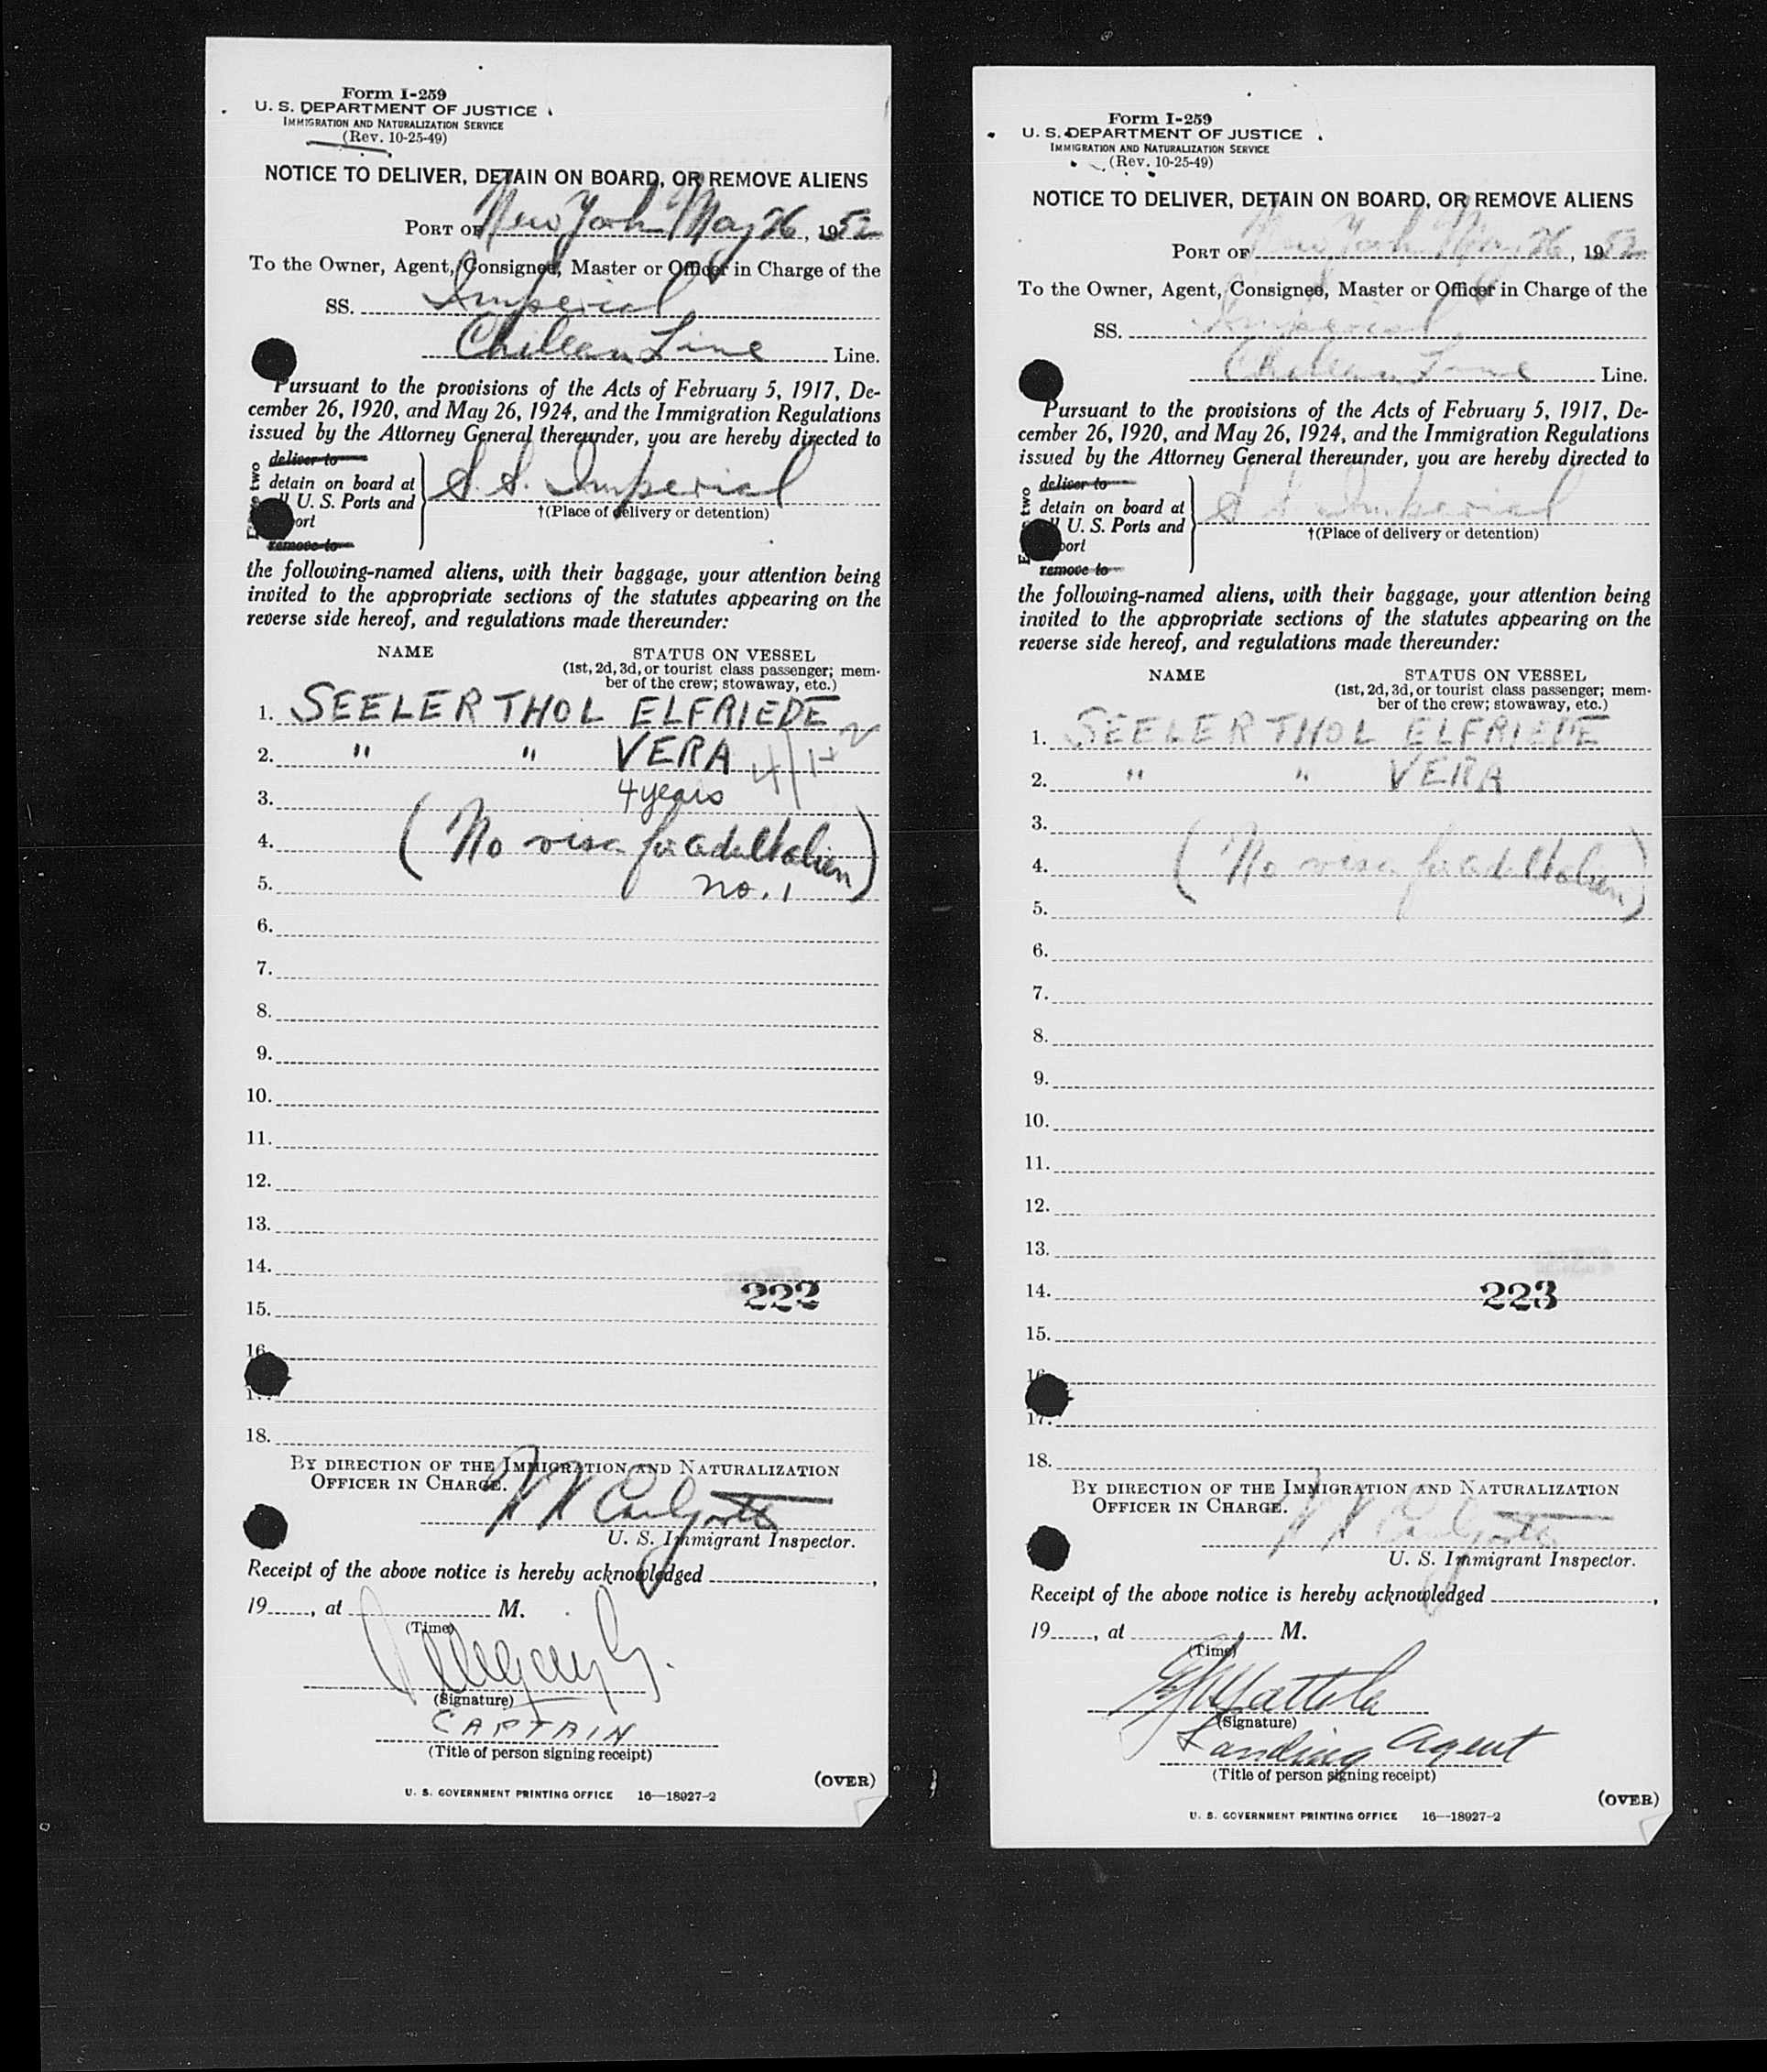 Form I-259
U. S. DEPARTMENT OF JUSTICE
IMMIGRATION AND NATURALIZATION SERVICE
(Rev. 10-25-49)
NOTICE TO DELIVER, DETAIN ON BOARD, OR REMOVE ALIENS
PORT OF New York May 26, 1952
To the Owner, Agent, Consignee, Master or Officer in Charge of the
SS. Imperial
Chilean Line Line.
Pursuant to the provisions of the Acts of February 5, 1917, De-
cember 26, 1920, and May 26, 1924, and the Immigration Regulations
issued by the Attorney General thereunder, you are hereby directed to
deliver to
detain on board at
U. S. Ports and
remove to
two
S. S. Imperial
†(Place of delivery or detention)
the following-named aliens, with their baggage, your attention being
invited to the appropriate sections of the statutes appearing on the
reverse side hereof, and regulations made thereunder:
NAME STATUS ON VESSEL
(1st, 2d, 3d, or tourist class passenger; mem-
ber of the crew; stowaway, etc.)
1. SEELER THOL ELFRIEDE
2. " " VERA
3. 4 years
4. (No visa for adult alien)
5. no. 1
6.
7.
8.
9.
10.
11.
12.
13.
14.
222
15.
16.
18.
BY DIRECTION OF THE IMMIGRATION AND NATURALIZATION
OFFICER IN CHARGE.
U. S. Immigrant Inspector.
Receipt of the above notice is hereby acknowledged ,
19 , at M.
(Time)
(Signature)
CAPTAIN
(Title of person signing receipt)
(OVER)
U. S. GOVERNMENT PRINTING OFFICE 16—18927-2
Form I-259
U. S. DEPARTMENT OF JUSTICE
IMMIGRATION AND NATURALIZATION SERVICE
(Rev. 10-25-49)
NOTICE TO DELIVER, DETAIN ON BOARD, OR REMOVE ALIENS
PORT OF New York May 26, 1952
To the Owner, Agent, Consignee, Master or Officer in Charge of the
SS. Imperial
Chilean Line Line.
Pursuant to the provisions of the Acts of February 5, 1917, De-
cember 26, 1920, and May 26, 1924, and the Immigration Regulations
issued by the Attorney General thereunder, you are hereby directed to
deliver to
detain on board at
U. S. Ports and
remove to
two
S. S. Imperial
†(Place of delivery or detention)
the following-named aliens, with their baggage, your attention being
invited to the appropriate sections of the statutes appearing on the
reverse side hereof, and regulations made thereunder:
NAME STATUS ON VESSEL
(1st, 2d, 3d, or tourist class passenger; mem-
ber of the crew; stowaway, etc.)
1. SEELER THOL ELFRIEDE
2. " " VERA
3.
4. (No visa for adult alien)
5.
6.
7.
8.
9.
10.
11.
12.
13.
14. 223
15.
16.
17.
18.
BY DIRECTION OF THE IMMIGRATION AND NATURALIZATION
OFFICER IN CHARGE.
U. S. Immigrant Inspector.
Receipt of the above notice is hereby acknowledged ,
19 , at M.
(Time)
(Signature)
Landing Agent
(Title of person signing receipt)
(OVER)
U. S. GOVERNMENT PRINTING OFFICE 16—18927-2